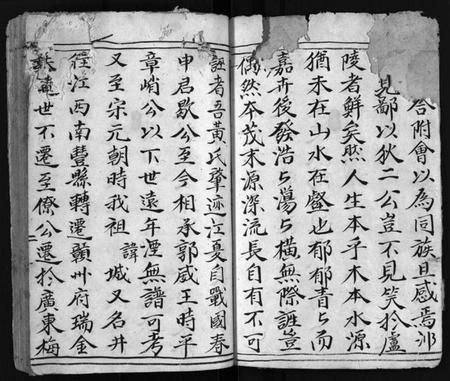 合附會以為同族且感焉非
見鄙以狄二公豈不見笑於廬
陵者鮮矣然人生本乎木本水源
猶未在山水在壑也郁郁青々而
嘉卉後發浩々蕩々橫無際誰豈
偶然本茂末源深流長自有不可
誣者吾黃氏肇迹江夏自戰國春
申君歇公至今相承郭威王時平
章峭公以下世遠年湮無譜可考
又至宋元朝時我祖 諱城又名井
徑江西南豐縣轉遷贛州府瑞金
世不遷至僚公遷於廣東梅